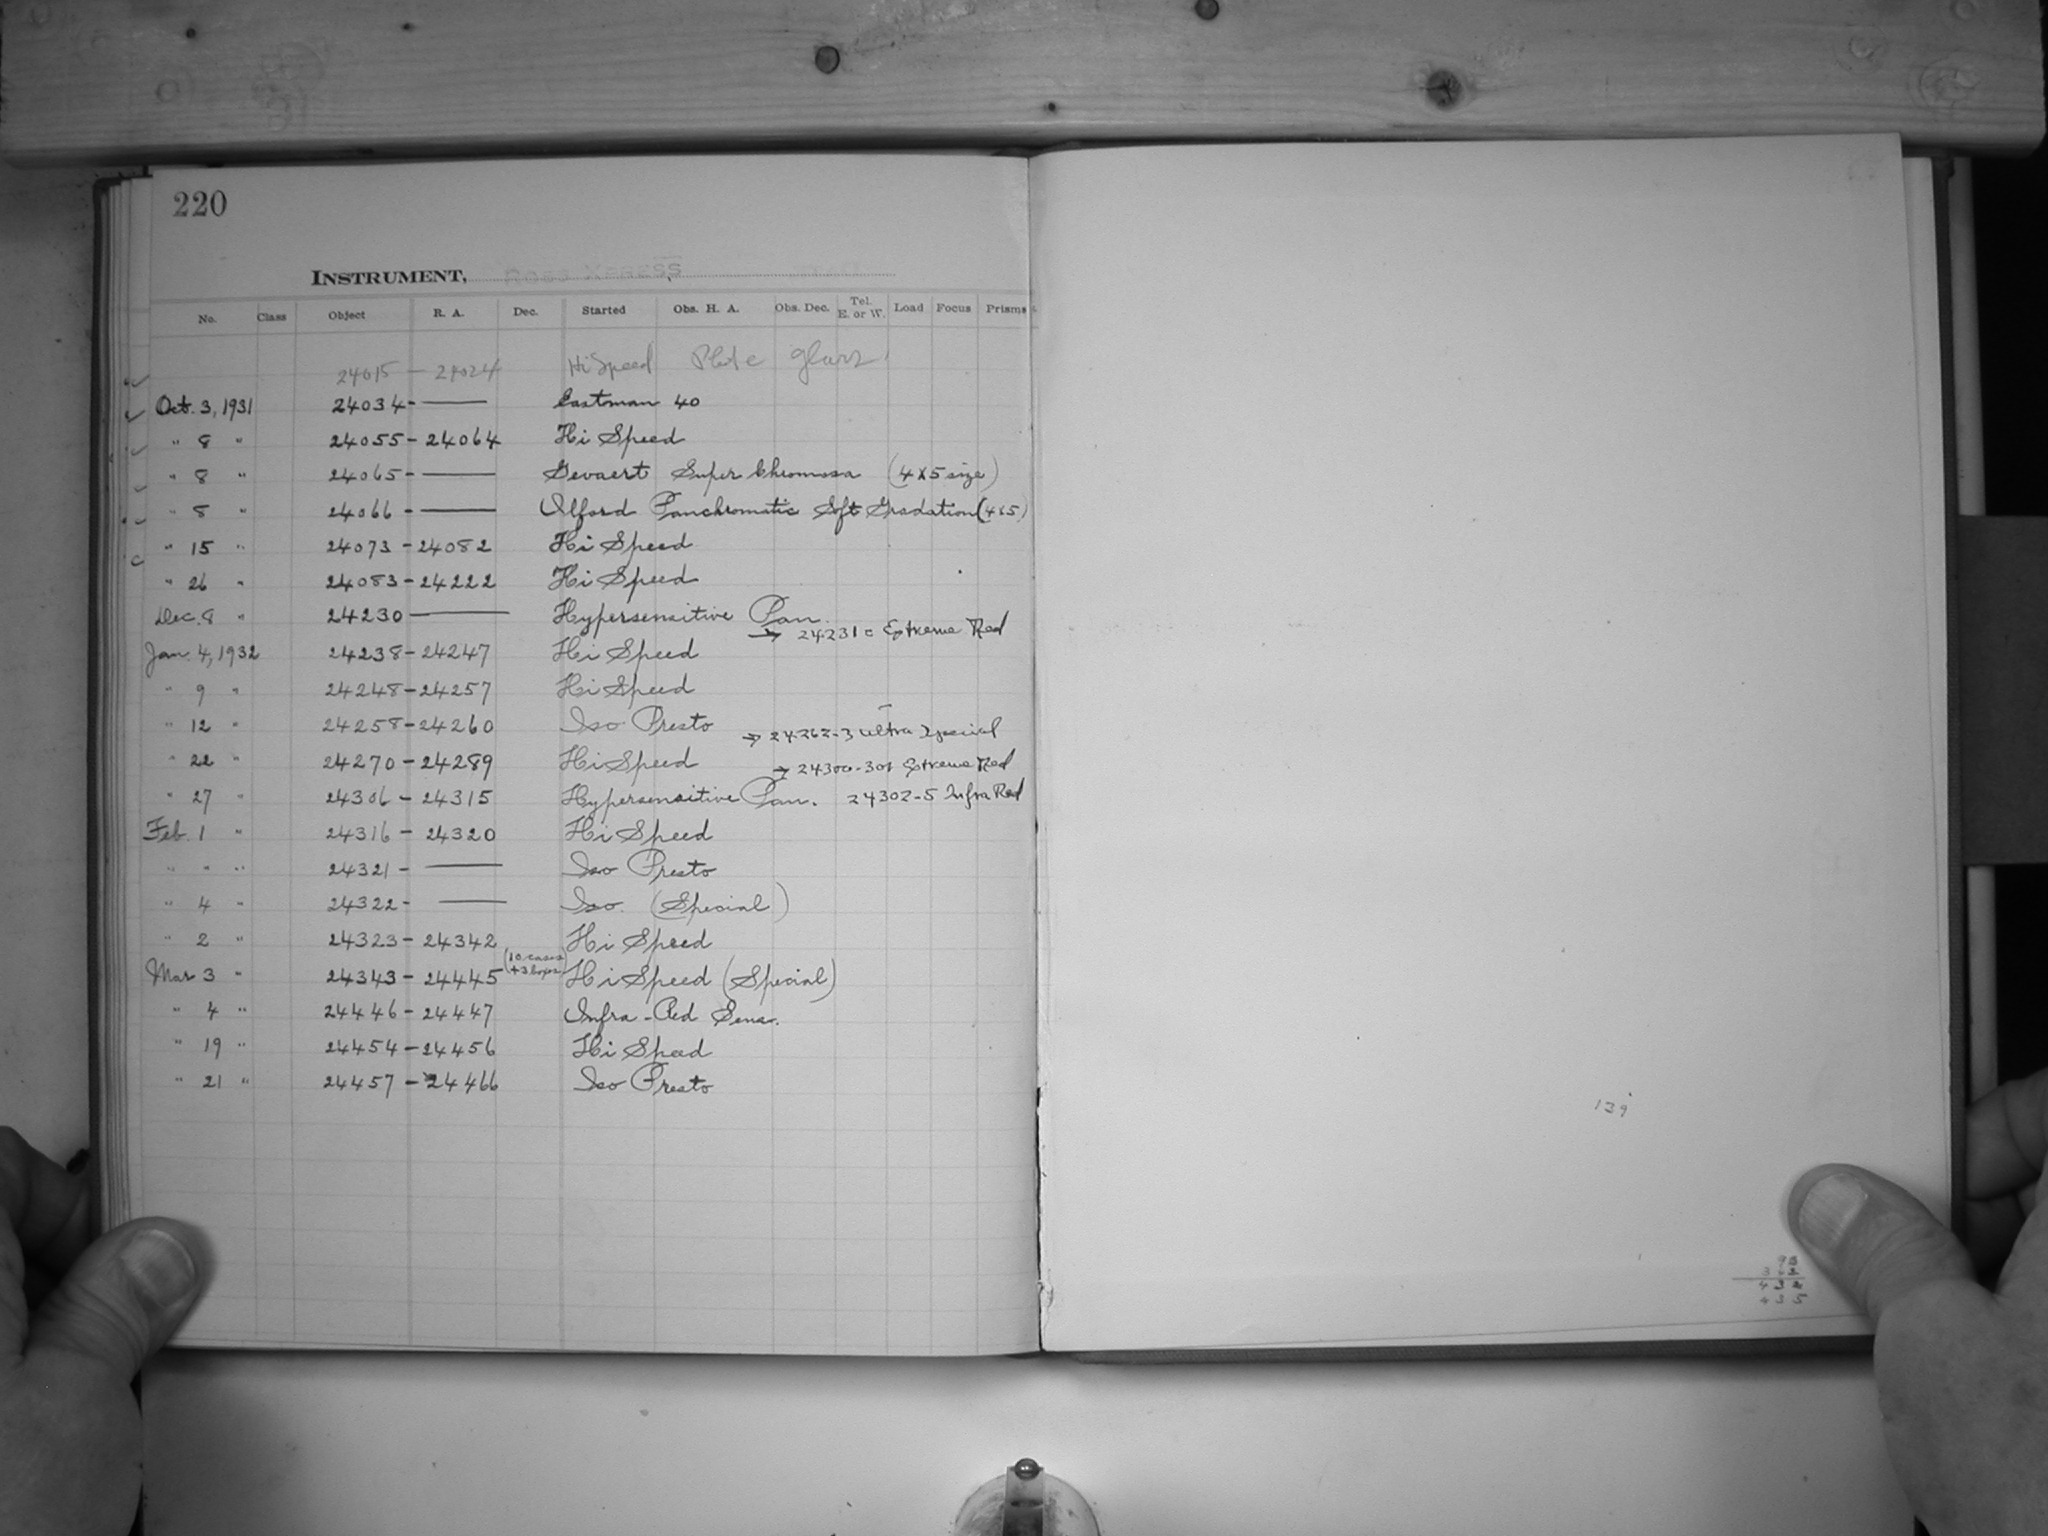 220
INSTRUMENT,
No. Class Object R. A. Dec. Started Obs. H. A. Obs. Dec. Tel. E. or W. Load Focus Prisms
24015 - 24024 Hi Speed Plate glass
Oct. 3, 1931 24034 - —— Eastman 40
" 8 " 24055 - 24064 Hi Speed
" 8 " 24065 - —— Gevaert Super Chromosa (4x5 size)
" 8 " 24066 - —— Ilford Panchromatic Soft Gradation (4x5)
" 15 " 24073 - 24082 Hi Speed
" 26 " 24083 - 24222 Hi Speed
Dec. 8 " 24230 - —— Hypersensitive Pan.
→ 24231 = Extreme Red
Jan. 4, 1932 24238 - 24247 Hi Speed
" 9 " 24248 - 24257 Hi Speed
" 12 " 24258 - 24260 Iso Presto → 24262-3 Ultra Special
" 22 " 24270 - 24289 Hi Speed → 24300-301 Extreme Red
" 27 " 24306 - 24315 Hypersensitive Pan. 24302-5 Infra Red
Feb. 1 " 24316 - 24320 Hi Speed
" " " 24321 - —— Iso Presto
" 4 " 24322 - —— Iso. (Special)
" 2 " 24323 - 24342 Hi Speed
Mar 3 " 24343 - 24445 (10 cases + 3 boxes) Hi Speed (Special)
" 4 " 24446 - 24447 Infra-Red Sens.
" 19 " 24454 - 24456 Hi Speed
" 21 " 24457 - 24466 Iso Presto
139
432
435